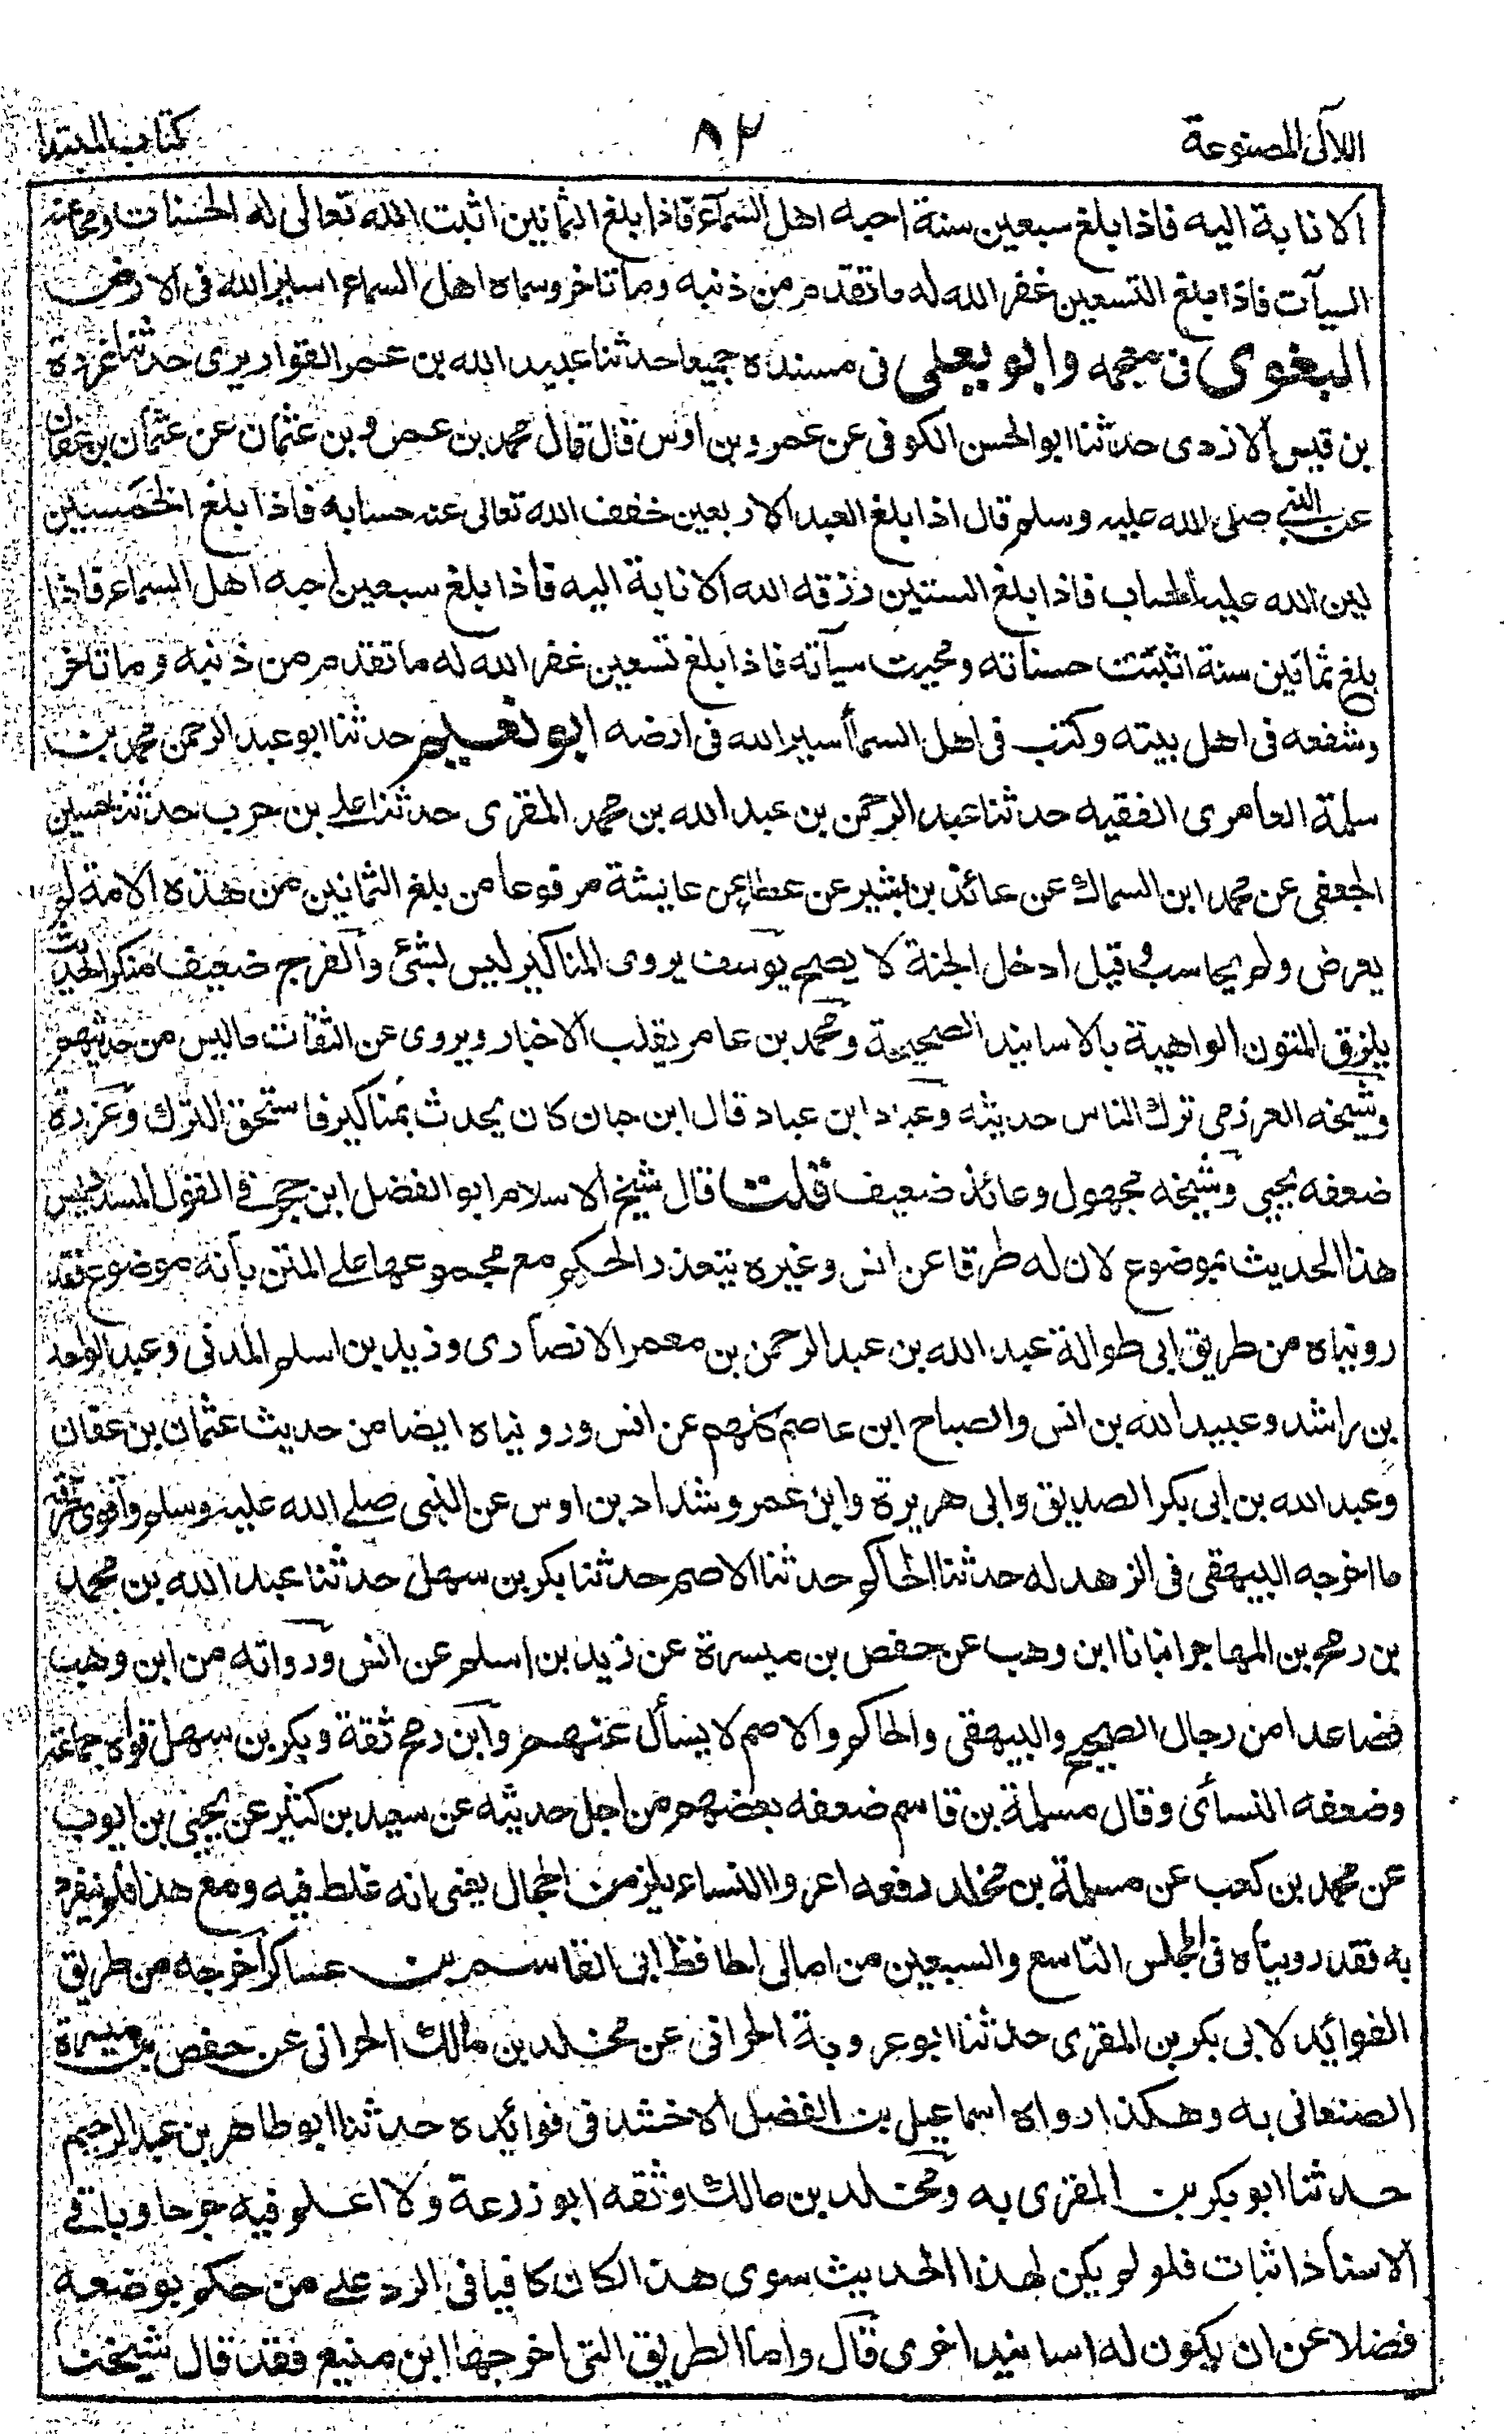 اللآلى المصنوعة
٨٢
كتاب المبتدا
الانابة اليه فاذا بلغ سبعين سنة احبه اهل السماء فاذا بلغ الثمانين اثبت الله تعالى له الحسنات ومحا عنه
السيآت فاذا بلغ التسعين غفر الله له ما تقدم من ذنبه وما تاخر وسماه اهل السماء اسير الله فى الارض
البغوى فى معجمه وابو يعلى فى مسنده جميعا حدثنا عبيد الله بن عمر القواريرى حدثنا عزرة
بن قيس الازدى حدثنا ابو الحسن الكوفى عن عمرو بن اوس قال قال محمد بن عمرو بن عثمان عن عثمان بن عفان
عن النبي صلى الله عليه وسلم قال اذا بلغ العبد الاربعين خفف الله تعالى عنه حسابه فاذا بلغ الخمسين
لين الله عليه الحساب فاذا بلغ الستين رزقه الله الانابة اليه فاذا بلغ سبعين احبه اهل السماء فاذا
بلغ ثمانين سنة اثبتت حسناته ومحيت سيآته فاذا بلغ تسعين غفر الله له ما تقدم من ذنبه وما تاخر
وشفعه فى اهل بيته وكتب فى اهل السماء اسير الله فى ارضه ابو نعيم حدثنا ابو عبد الرحمن محمد بن
سلمة العامرى الفقيه حدثنا عبد الرحمن بن عبد الله بن محمد المقرى حدثنا على بن حرب حدثنا حسين
الجعفى عن محمد ابن السماك عن عائذ بن بشير عن عطاء عن عايشة مرفوعا من بلغ الثمانين من هذه الامة لم
يعرض ولم يحاسب وقيل ادخل الجنة لا يصح يوسف يروى المناكير ليس بشئ والفرج ضعيف منكر الحديث
يلزق المتون الواهية بالاسانيد الصحيحة ومحمد بن عامر يقلب الاخبار ويروى عن الثقات ما ليس من حديثهم
وشيخه العرزمى ترك الناس حديثه وعباد ابن عباد قال ابن حبان كان يحدث بمناكير فاستحق الترك وعزرة
ضعفه يحيى وشيخه مجهول وعائذ ضعيف قلت قال شيخ الاسلام ابو الفضل ابن حجر فى القول المسدد ليس
هذا الحديث بموضوع لان له طرقا عن انس وغيره يتعذر الحكم مع مجموعها على المتن بانه موضوع فقد
رويناه من طريق ابى طوالة عبد الله بن عبد الرحمن بن معمر الانصارى وزيد بن اسلم المدنى وعبد الواحد
بن راشد وعبيد الله بن انس والصباح ابن عاصم كلهم عن انس ورويناه ايضا من حديث عثمان بن عفان
وعبد الله بن ابى بكر الصديق وابى هريرة وابن عمر وشداد بن اوس عن النبى صلى الله عليه وسلم واقوى طرقه
ما اخرجه البيهقى فى الزهد له حدثنا الحاكم حدثنا الاصم حدثنا بكر بن سهل حدثنا عبد الله بن محمد
بن رمح بن المهاجر انبانا ابن وهب عن حفص بن ميسرة عن زيد بن اسلم عن انس ورواته من ابن وهب
فصاعدا من رجال الصحيح والبيهقى والحاكم والاصم لا يسأل عنهم وابن رمح ثقة وبكر بن سهل قواه جماعة
وضعفه النسائى وقال مسلمة بن قاسم ضعفه بعضهم من اجل حديثه عن سعيد بن كثير عن يحيى بن ايوب
عن محمد بن كعب عن مسلمة بن مخلد رفعه اعروا النساء يلزمن الحجال يعنى انه غلط فيه ومع هذا فلم ينفرد
به فقد رويناه فى المجلس التاسع والسبعين من امالى الحافظ ابى القاسم بن عساكر اخرجه من طريق
الفوائد لابى بكر بن المقرى حدثنا ابو عروبة الحرانى عن مخلد بن مالك الحرانى عن حفص بن ميسرة
الصنعانى به وهكذا رواه اسماعيل بن الفضل الاخشد فى فوائده حدثنا ابو طاهر بن عبد الرحيم
حدثنا ابو بكر بن المقرى به ومخلد بن مالك وثقه ابو زرعة ولا اعلم فيه جرحا وباقى
الاسناد اثبات فلو لم يكن لهذا الحديث سوى هذا لكان كافيا فى الرد على من حكم بوضعه
فضلا عن ان يكون له اسانيد اخرى قال واما الطريق التى اخرجها ابن منيع فقد قال شيخنا